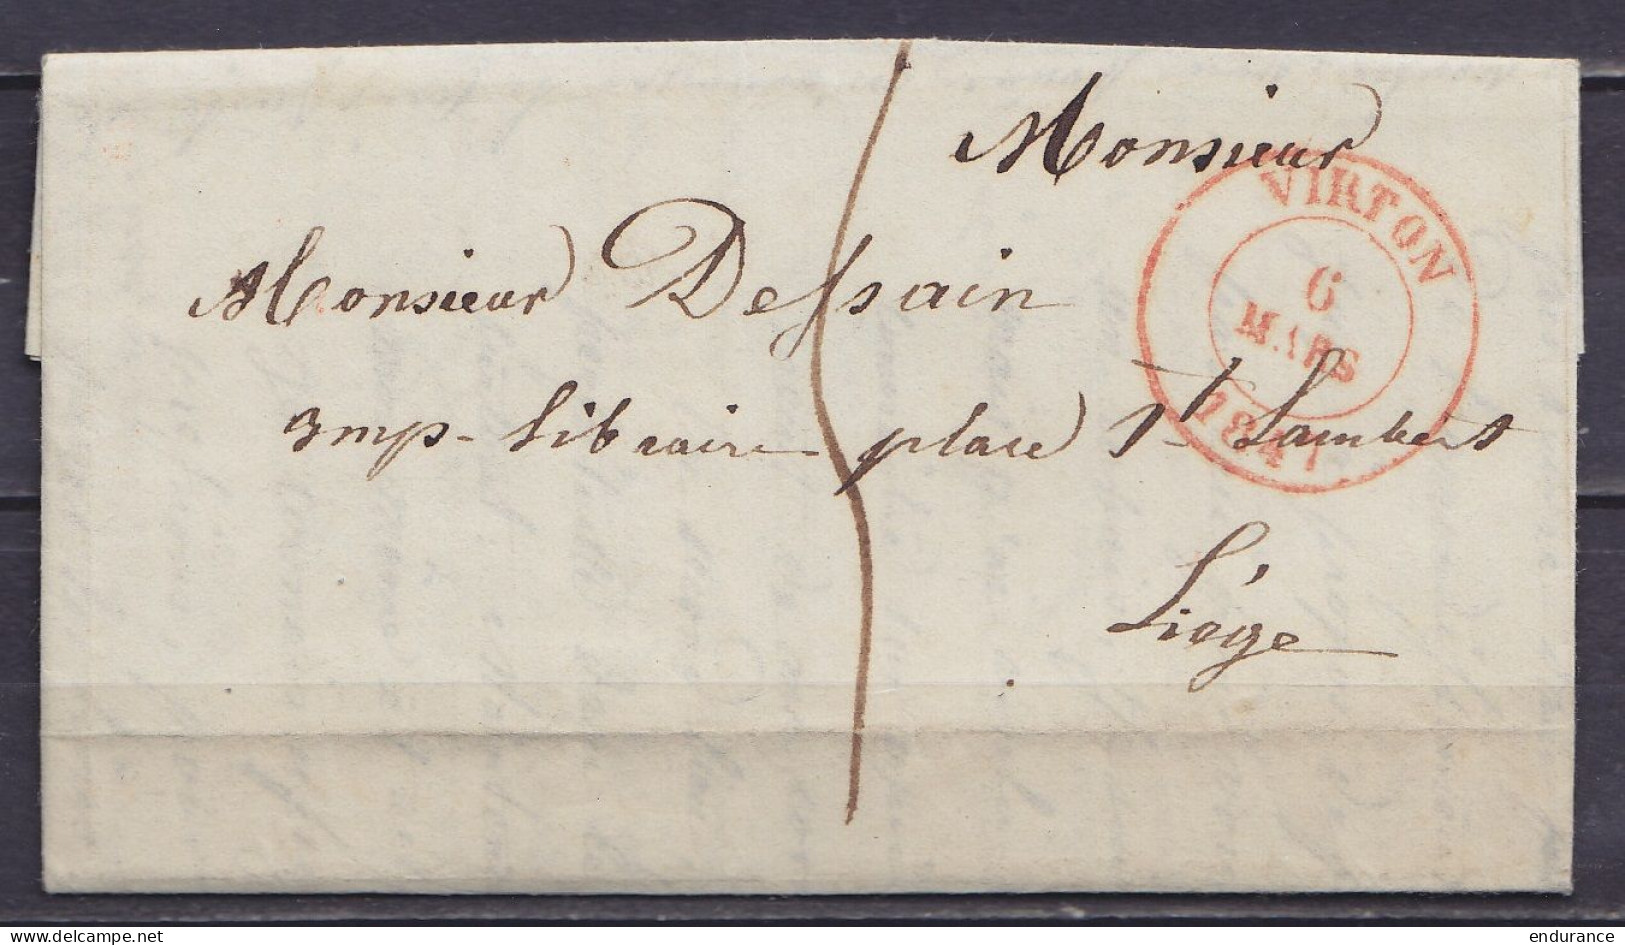 Monsieur
Monsieur Dessain
imp-libraire place St Lambert
Liége
VIRTON
6
MARS
1847
delcampe.net
endurance